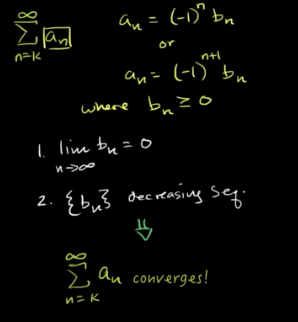 ∞
∑ aₙ
n=k
aₙ = (-1)ⁿ bₙ
or
aₙ = (-1)ⁿ⁺¹ bₙ
where bₙ ≥ 0
1. lim bₙ = 0
n→∞
2. {bₙ} decreasing seq.
⇓
∞
∑ aₙ converges!
n=k